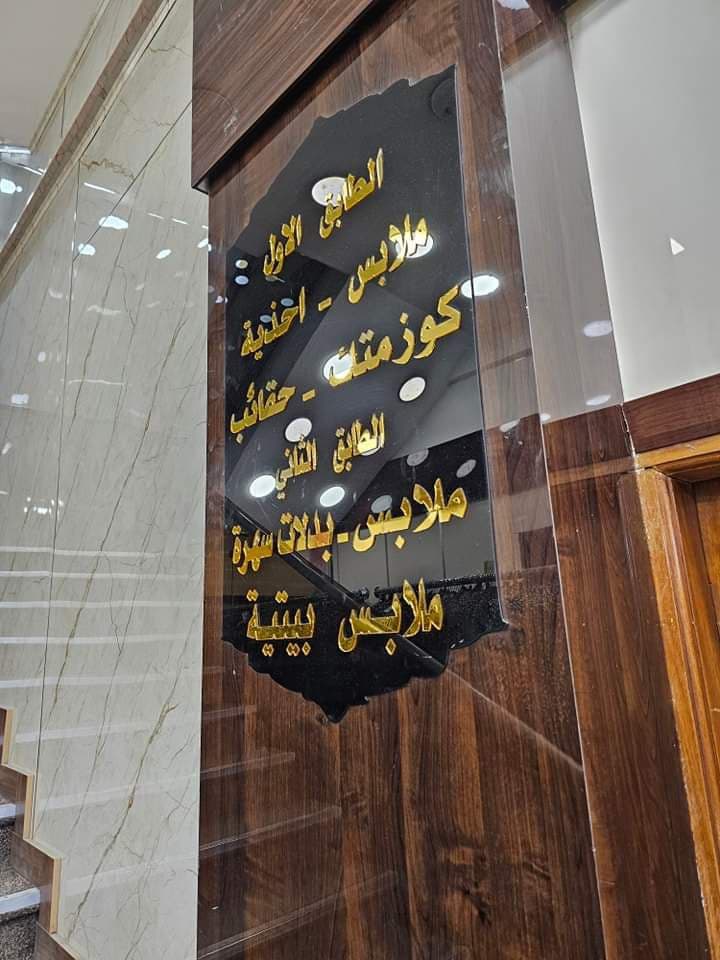 الطابق الاول
ملابس - احذية
كوزمتك - حقائب
الطابق الثاني
ملابس - بدلات سهرة
ملابس بيتية